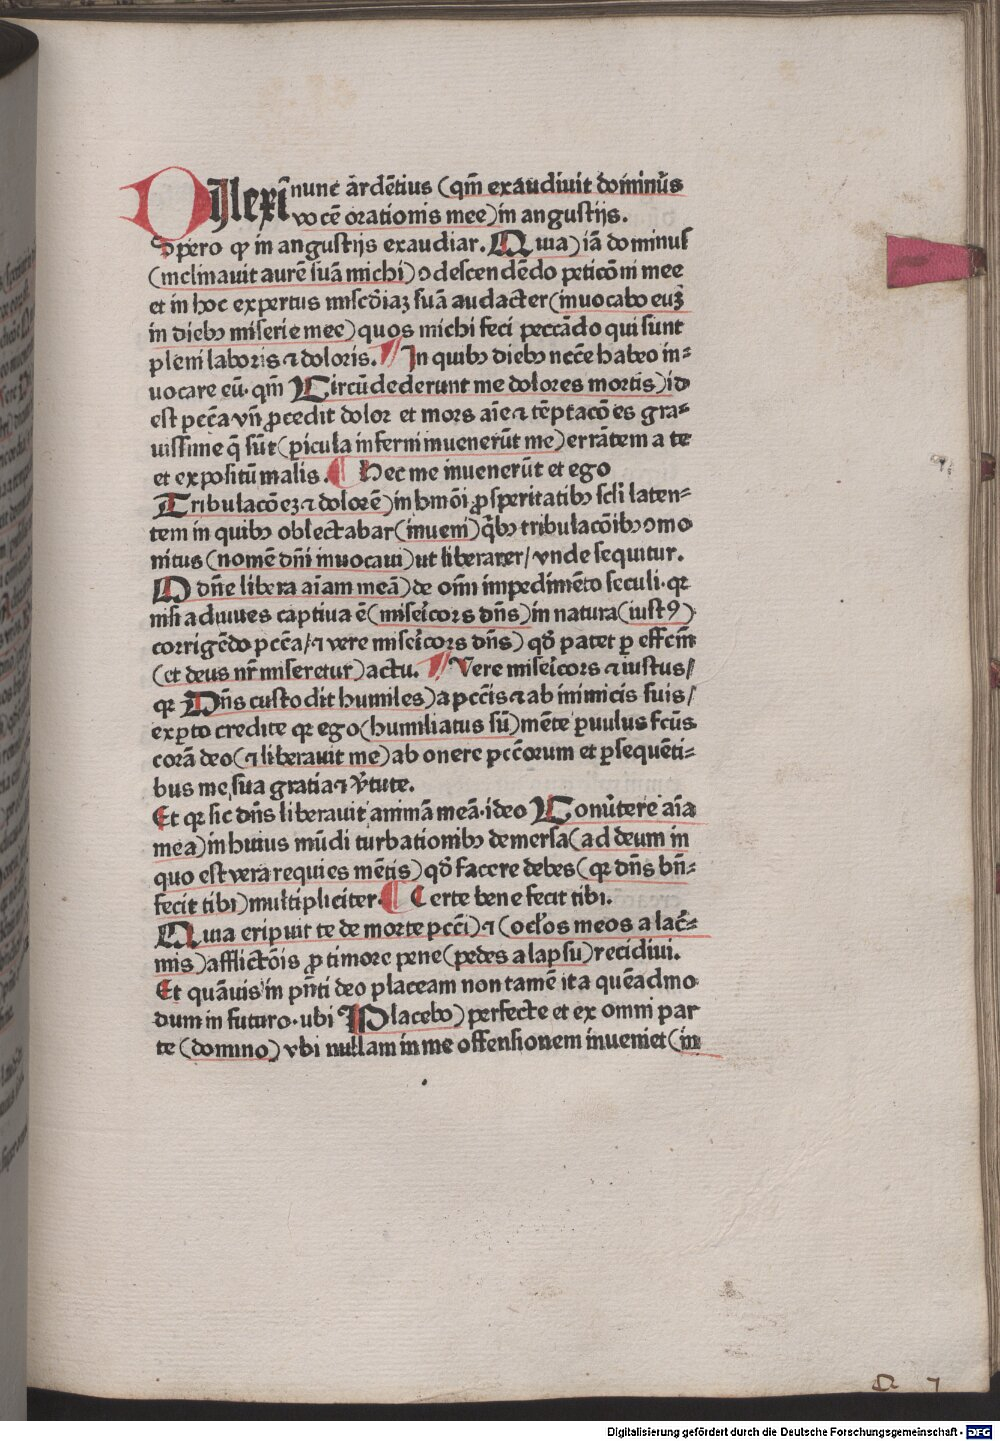 DIlexi nunc ardētius (qm̄ exaudiuit dominus
vocē orationis mee) in angustijs.
Spero qꝫ in angustijs exaudiar. Quia) iā dominus
(inclinauit aurē suā michi) ꝯdescendēdo peticōni mee
et in hoc expertus misc̄diaꝫ suā audacter (inuocabo euꝫ
in diebꝰ miserie mee) quos michi feci peccādo qui sunt
pleni laboris ⁊ doloris. ¶ In quibꝰ diebꝰ necc̄e habeo in⸗
uocare eū. qm̄ Circūdederunt me dolores mortis) id
est pcc̄a vn̄ ꝓcedit dolor et mors aīe ⁊ tēptacōes gra⸗
uissime q̄ sūt (ꝑicula inferni inuenerūt me) errātem a te
et expositū malis. ¶ Hec me inuenerūt et ego
Tribulacōeꝫ ⁊ dolorē) in hm̄oi ꝓsperitatibꝰ scl̄i laten⸗
tem in quibꝰ oblectabar (inueni) q̄bꝰ tribulacōibꝰ ꝯmo
nitus (nomē dn̄i inuocaui) ut liberarer / vnde sequitur.
O dn̄e libera aīam meā) de om̄i impedimēto seculi. qꝛ
nisi adiuues captiua ē (miseīcors dn̄s) in natura (iustꝰ)
corrigēdo pcc̄a / ⁊ vere miseīcors dn̄s) qd̄ patet ꝑ effcm̄
(et deus nr̄ miseretur) actu. ¶ Vere miseīcors ⁊ iustus /
qꝛ Dn̄s custodit humiles) a pcc̄is ⁊ ab inimicis suis /
exꝑto credite qꝛ ego (humiliatus sū) mēte ꝑuulus fcūs
corā deo (⁊ liberauit me) ab onere pcc̄orum et ꝑsequēti⸗
bus me, sua gratia ⁊ v̄tute.
Et qꝛ sic dn̄s liberauit animā meā. ideo Conūtere aīa
mea) in huius mūdi turbationibꝰ demersa (ad deum in
quo est vera requies mētis) qd̄ facere debes (qꝛ dn̄s bn̄⸗
fecit tibi) multipliciter. ¶ Certe bene fecit tibi.
Quia eripuit te de morte pcc̄i) ⁊ (ocl̄os meos a lac̄⸗
mis) afflictōis ꝓ timore pene (pedes a lapsu) recidiui.
Et quāuis in pn̄ti deo placeam non tamē ita quēadmo
dum in futuro. ubi Placebo) perfecte et ex omni par
te (domino) vbi nullam in me offensionem inueniet (in
Digitalisierung gefördert durch die Deutsche Forschungsgemeinschaft - DFG